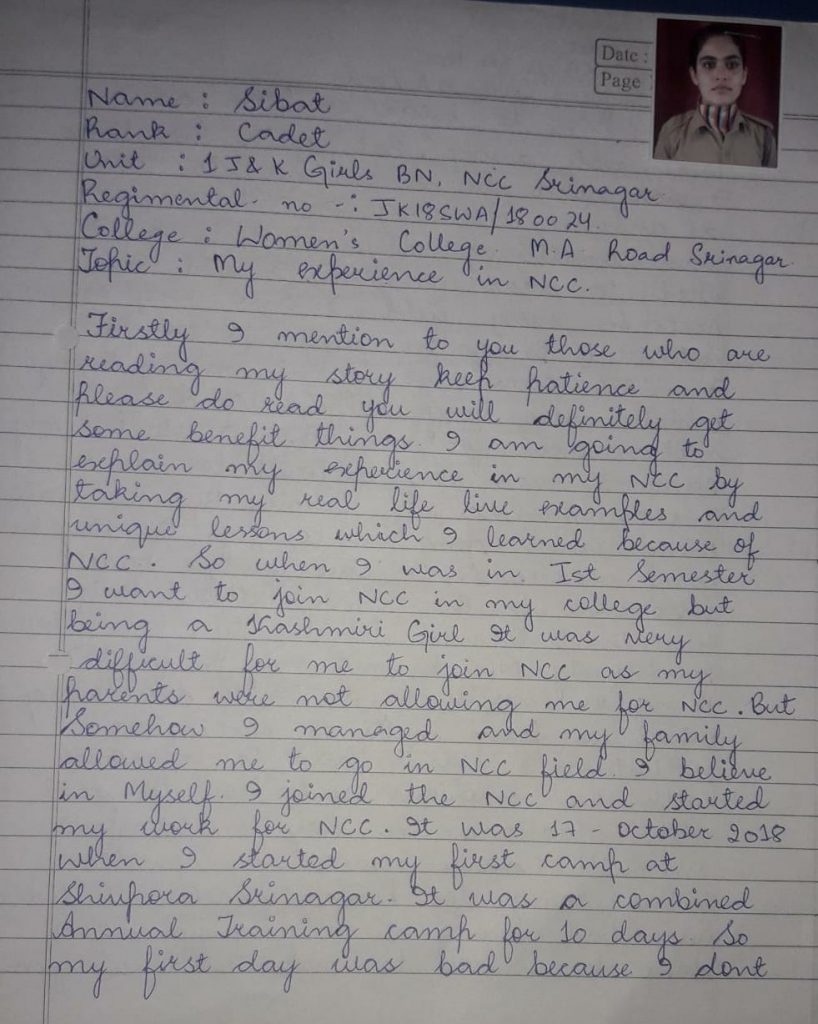 Date :
Page
Name : Sibat
Rank : Cadet
Unit : 1 J & K Girls BN, NCC Srinagar
Regimental no -: JK18SWA/180024.
College : Women's College M.A Road Srinagar.
Topic : My experience in NCC.
Firstly I mention to you those who are
reading my story keep patience and
please do read you will definitely get
some benefit things. I am going to
explain my experience in my NCC by
taking my real life live examples and
unique lessons which I learned because of
NCC. So when I was in Ist Semester
I want to join NCC in my college but
being a Kashmiri Girl It was very
difficult for me to join NCC as my
parents were not allowing me for NCC. But
Somehow I managed and my family
allowed me to go in NCC field. I believe
in Myself. I joined the NCC and started
my work for NCC. It was 17 - October 2018
when I started my first camp at
Shivpora Srinagar. It was a combined
Annual Training camp for 10 days. So
my first day was bad because I dont